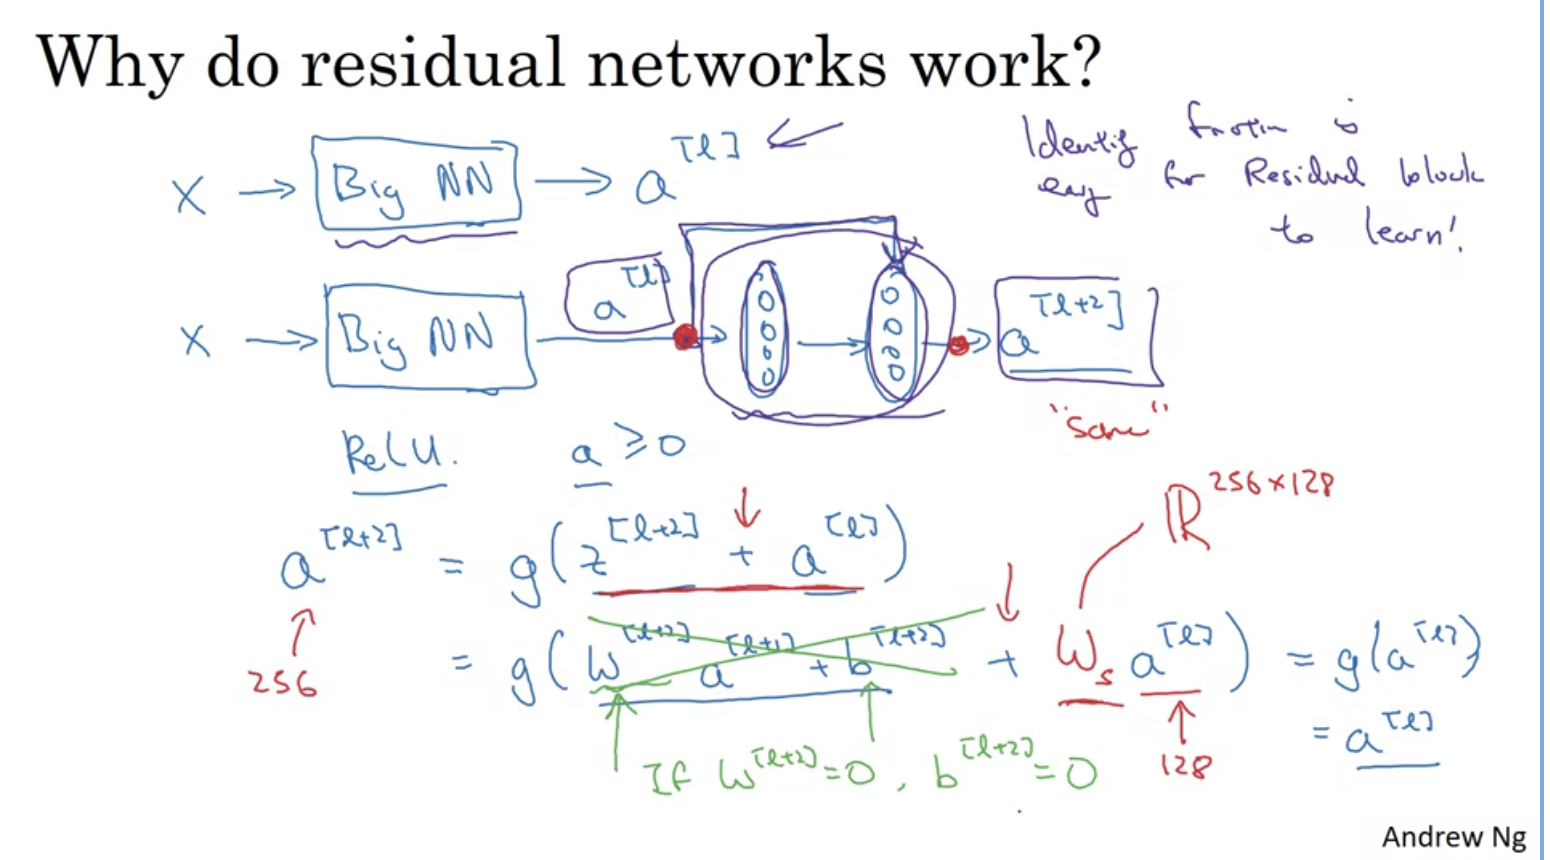 Why do residual networks work?
X → Big NN → a^[l]
Identity function is
easy for Residual block
to learn!
X → Big NN a^[l] → a^[l+2]
"same"
ReLU. a ≥ 0
a^[l+2] = g(z^[l+2] + a^[l])
ℝ^256×128
256
= g(W^[l+2] a^[l+1] + b^[l+2] + W_s a^[l]) = g(a^[l])
= a^[l]
128
If W^[l+2] = 0, b^[l+2] = 0
Andrew Ng